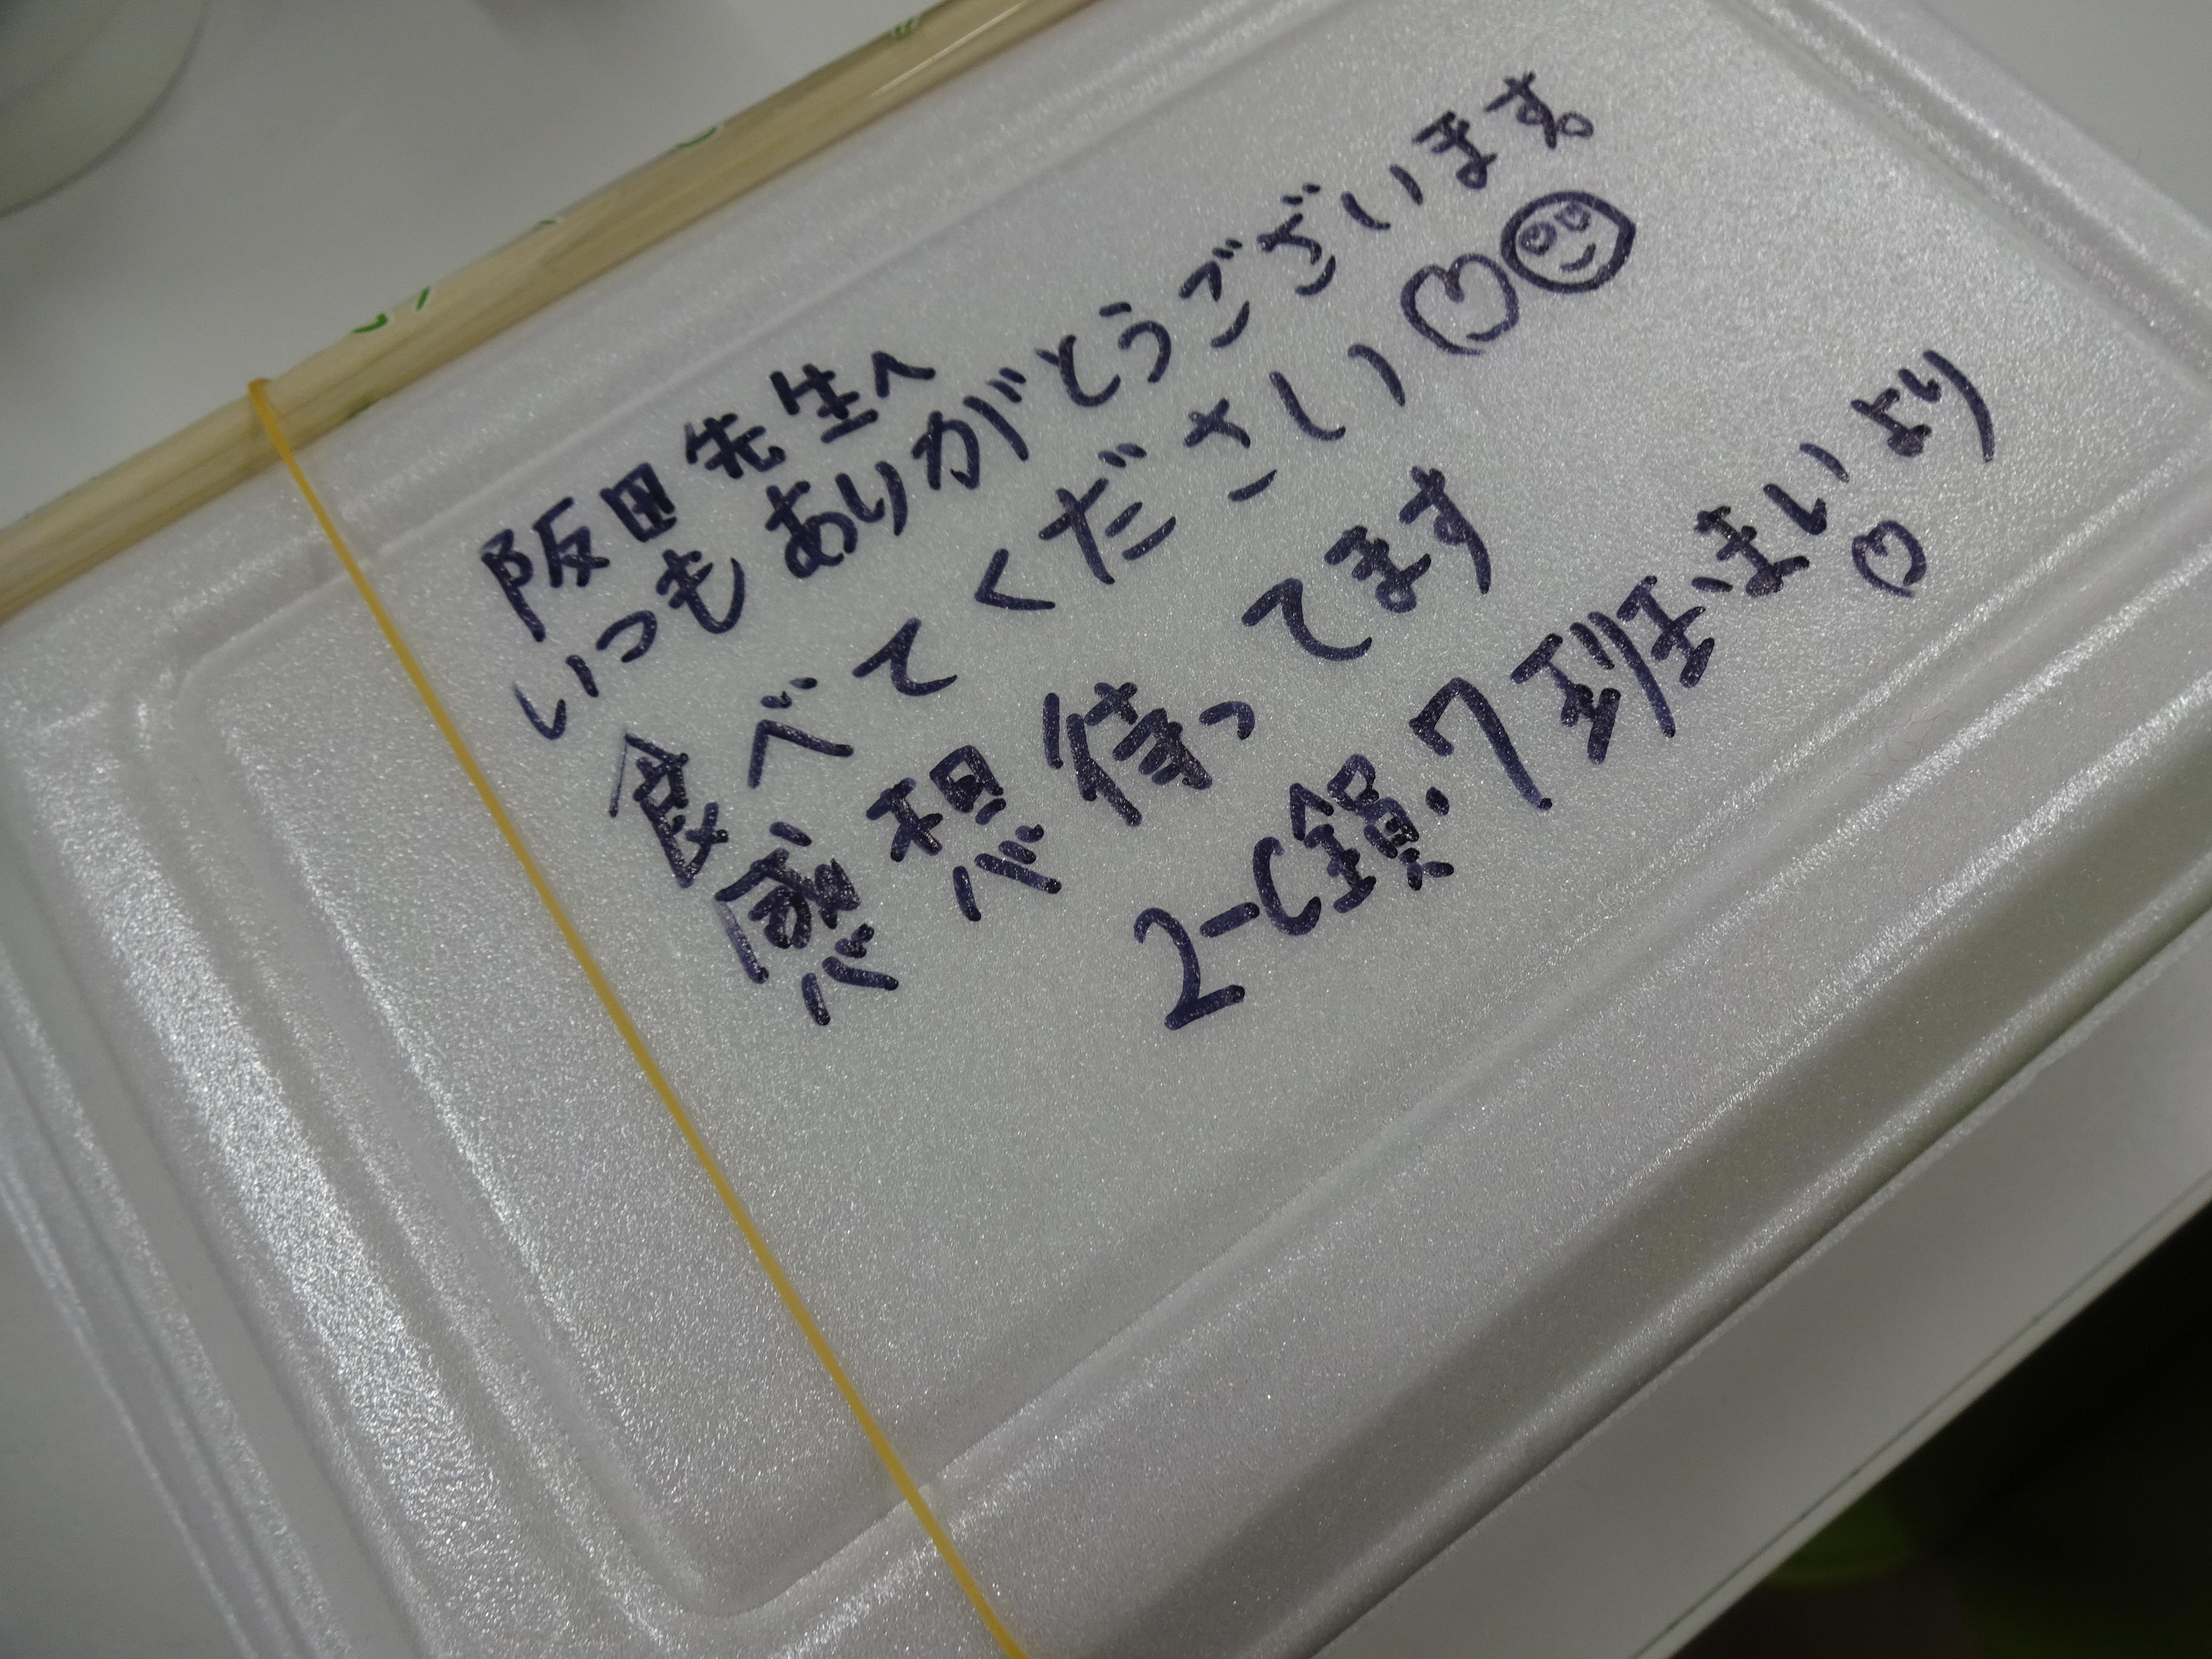 阪田先生へ
いつもありがとうございます。
食べてください♡☺
感想待ってます
2-C鎖.7班まいより♡